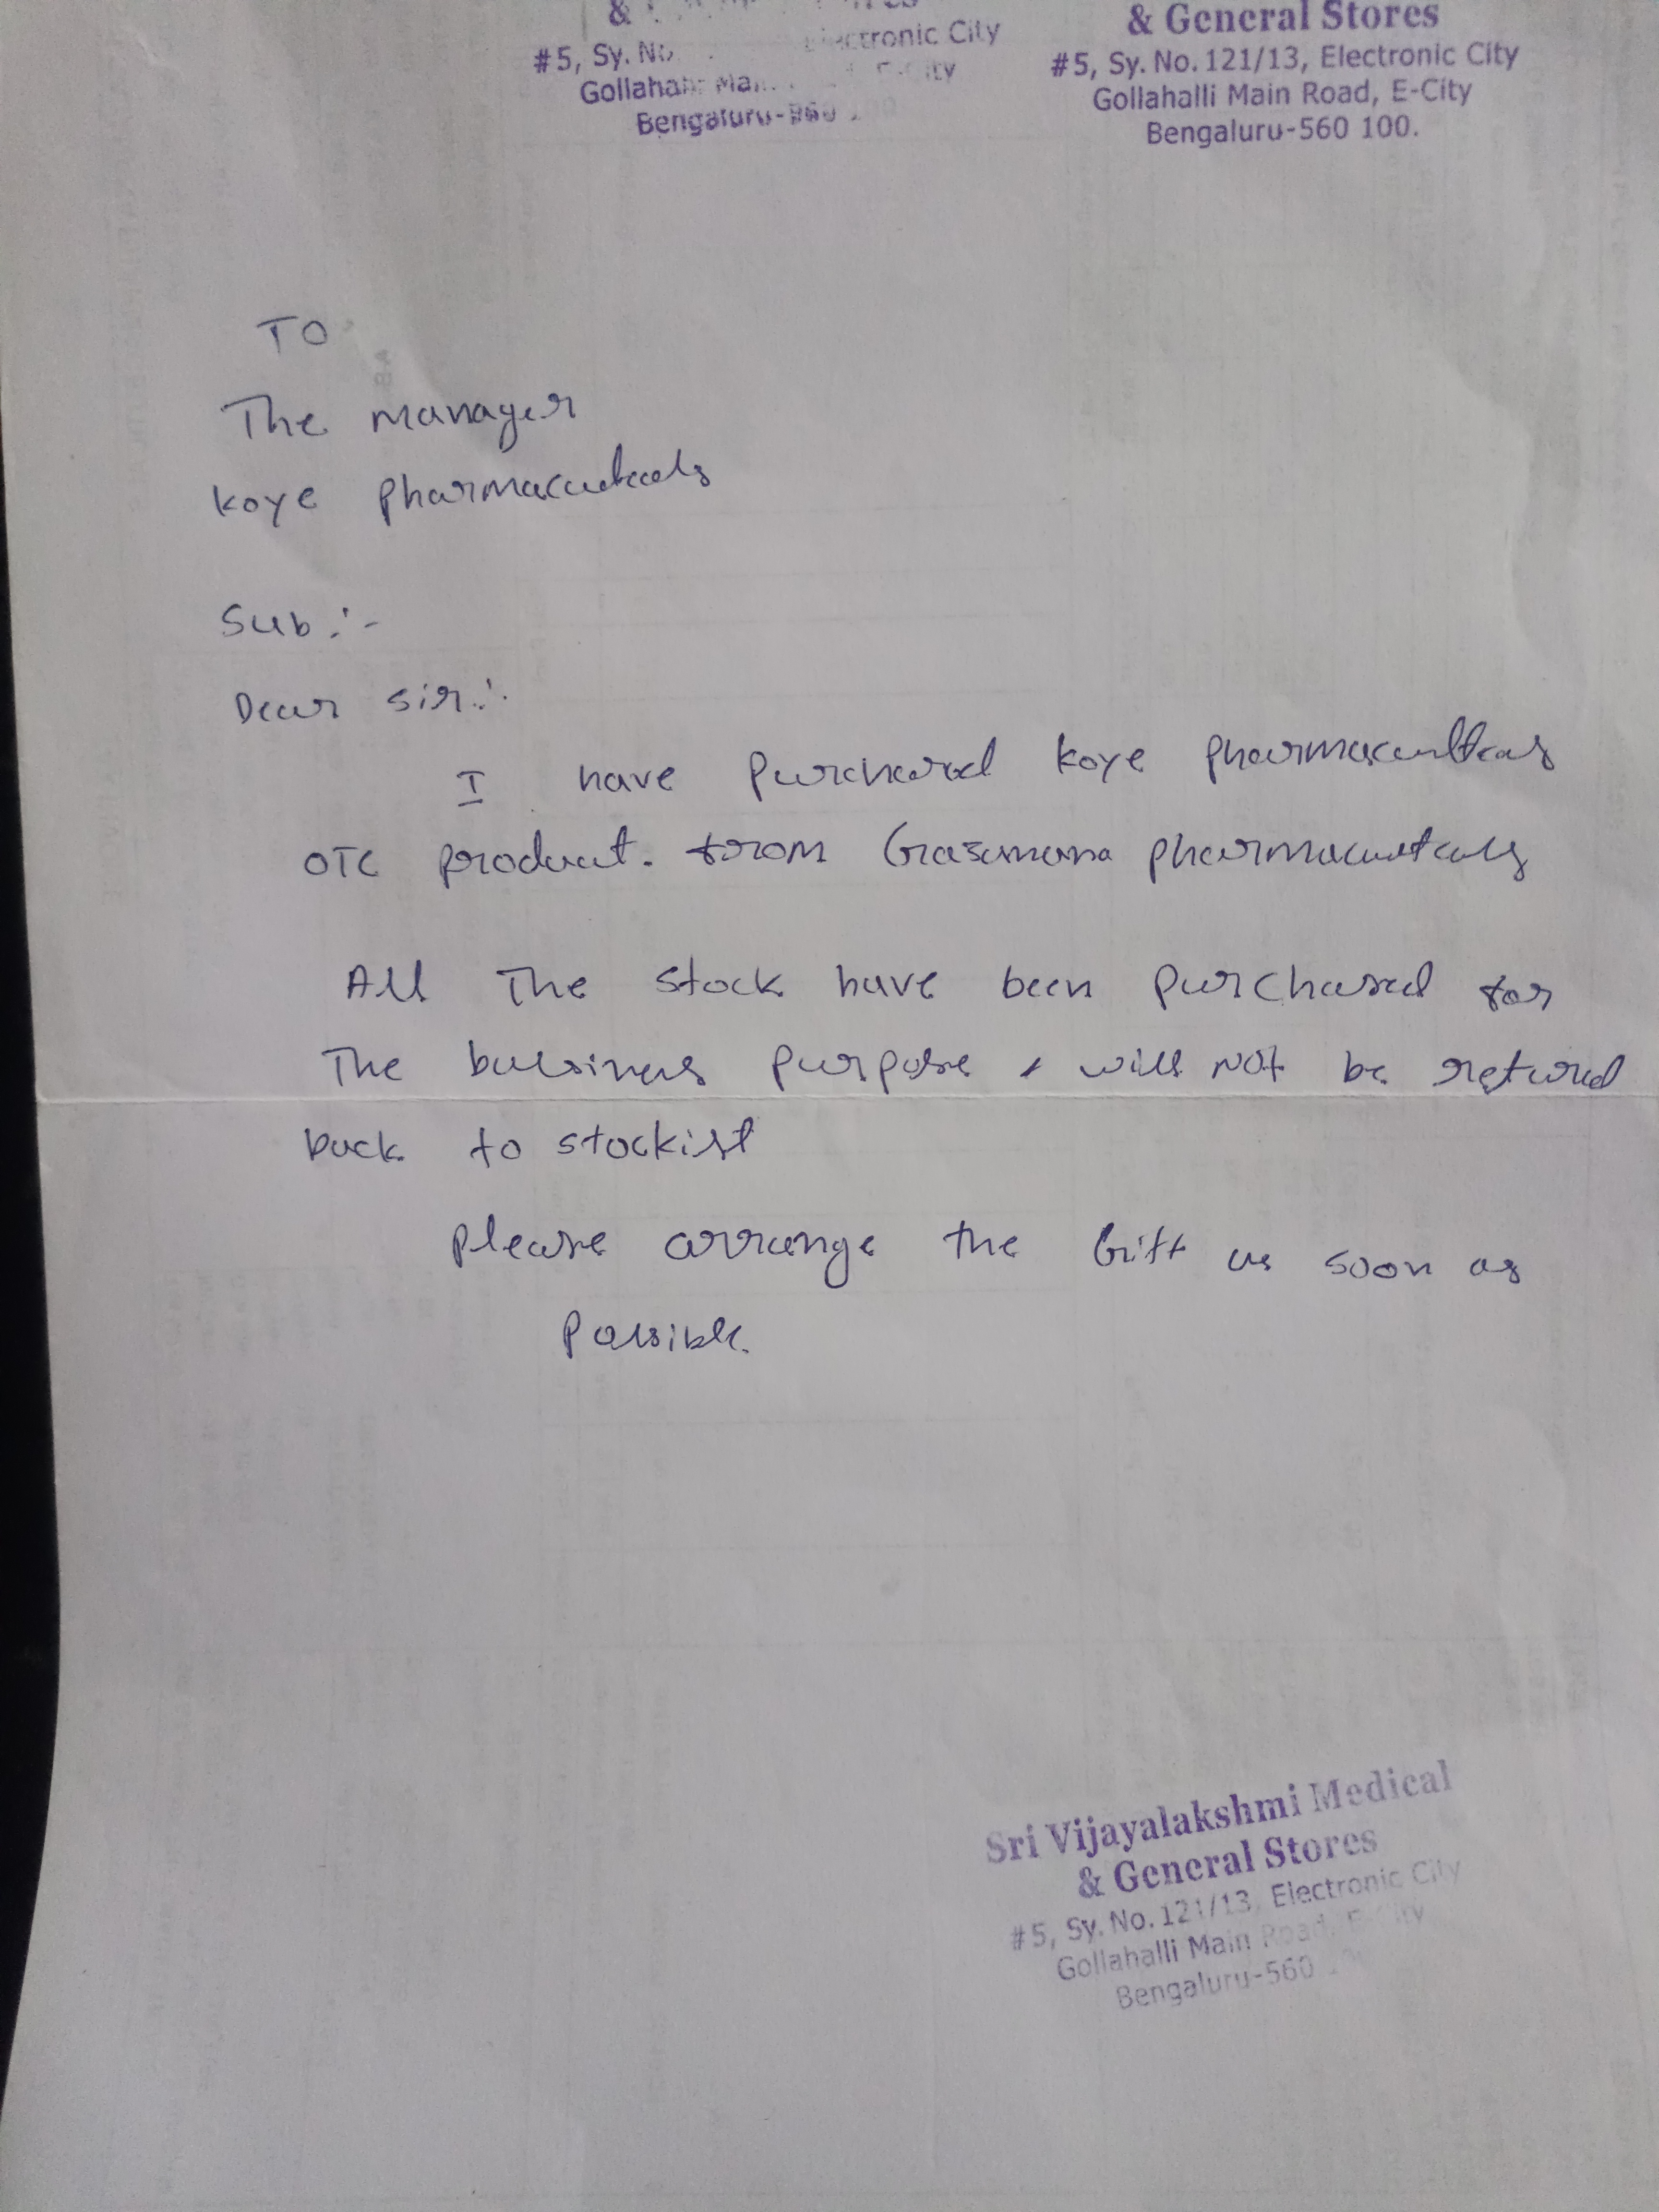 &
#5, Sy. No Electronic City
Gollahalli Mai
Bengaluru-560
& General Stores
#5, Sy. No. 121/13, Electronic City
Gollahalli Main Road, E-City
Bengaluru-560 100.
TO
The manager
Koye pharmaceuticals
Sub :-
Dear sir :
I have purchased koye pharmaceuticals
OTC product. from pharmaceuticals
All The stock have been purchased for
The bussiness purpose & will not be retured
back to stockist
please arrange the Gift as soon as
Possible.
Sri Vijayalakshmi Medical
& General Stores
#5, Sy. No. 121/13, Electronic City
Gollahalli Main Road, E-City
Bengaluru-560